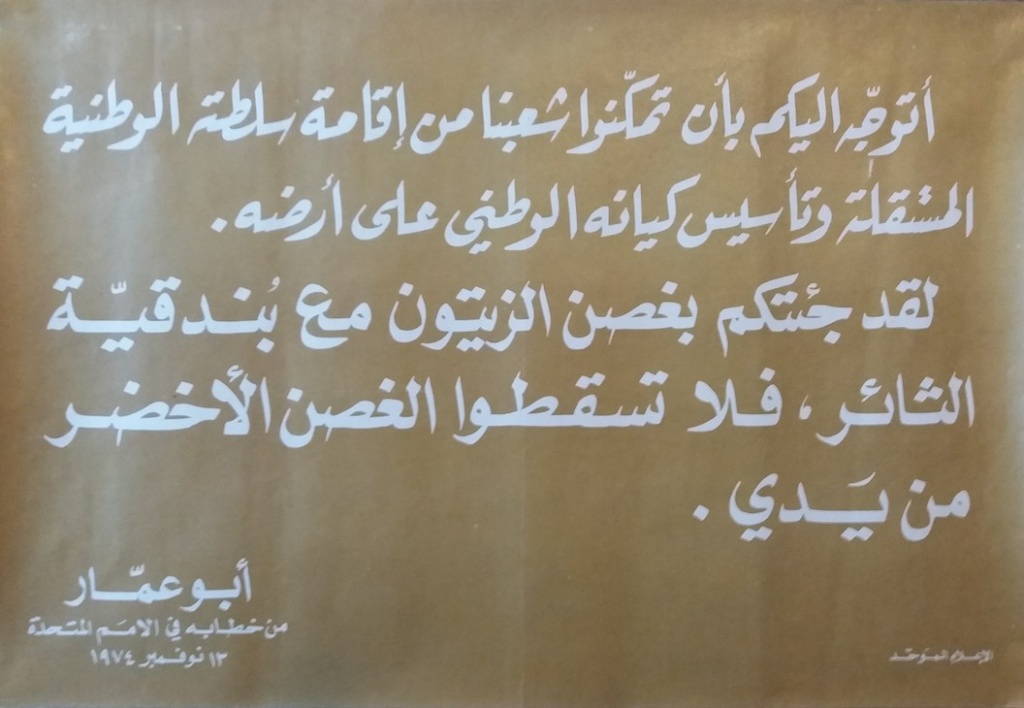 أتوجّه اليكم بأن تمكّنوا شعبنا من إقامة سلطته الوطنية
المستقلة وتأسيس كيانه الوطني على أرضه.
لقد جئتكم بغصن الزيتون مع بُندقيّة
الثائر، فلا تسقطوا الغصن الأخضر
من يَدي.
أبو عمّار
من خطابه في الامَم المتحدة
١٣ نوفمبر ١٩٧٤
الإعلام الموحّد